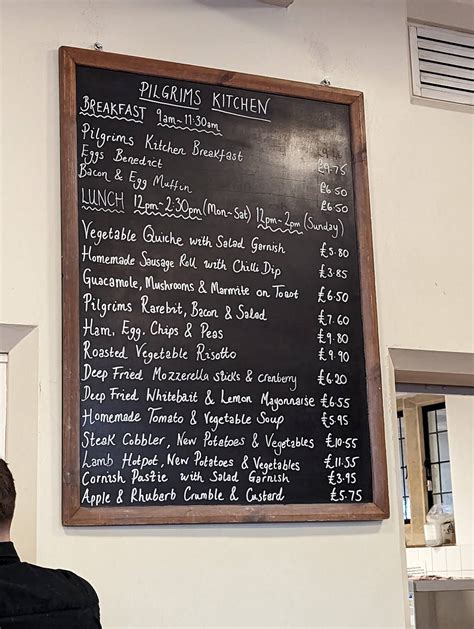 PILGRIMS KITCHEN
BREAKFAST 9am-11:30am
Pilgrims Kitchen Breakfast £9.75
Eggs Benedict £6.50
Bacon & Egg Muffin £6.50
LUNCH 12pm-2:30pm (Mon-Sat) 12pm-2pm (Sunday)
Vegetable Quiche with Salad Garnish £5.80
Homemade Sausage Roll with Chilli Dip £3.85
Guacamole, Mushrooms & Marmite on Toast £6.50
Pilgrims Rarebit, Bacon & Salad £7.60
Ham, Egg, Chips & Peas £9.80
Roasted Vegetable Risotto £9.90
Deep Fried Mozzerella sticks & cranberry £6.20
Deep Fried Whitebait & Lemon Mayonnaise £6.55
Homemade Tomato & Vegetable Soup £5.95
Steak Cobbler, New Potatoes & Vegetables £10.55
Lamb Hotpot, New Potatoes & Vegetables £11.55
Cornish Pastie with Salad Garnish £3.95
Apple & Rhubarb Crumble & Custard £5.75